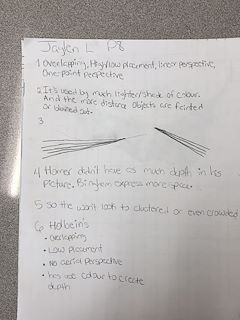 Jaylen L P8
1 Overlapping, High/low placement, linear perspective,
One-point perspective
2 It's used by much lighter/shade of colour.
And the more distance objects are fainted
or blurred out.
3
4 Homer didn't have as much depth in his
picture. Bingham express more space.
5 so the won't look to clustered or even crowded
6 Holbein's
• overlapping
• Low placement
• No aerial perspective
• hes use colour to create
depth